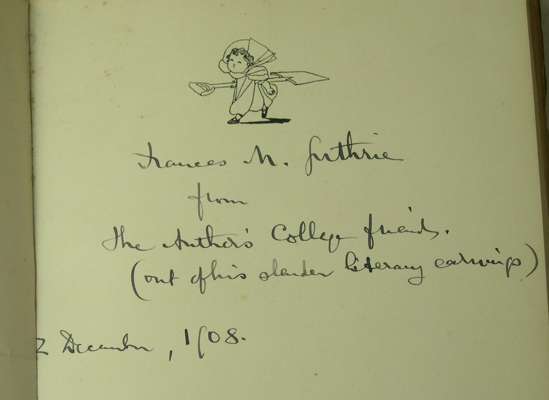 Frances M. Guthrie
from
the Author's College friends.
(out of his slender literary earnings)
2 December, 1908.